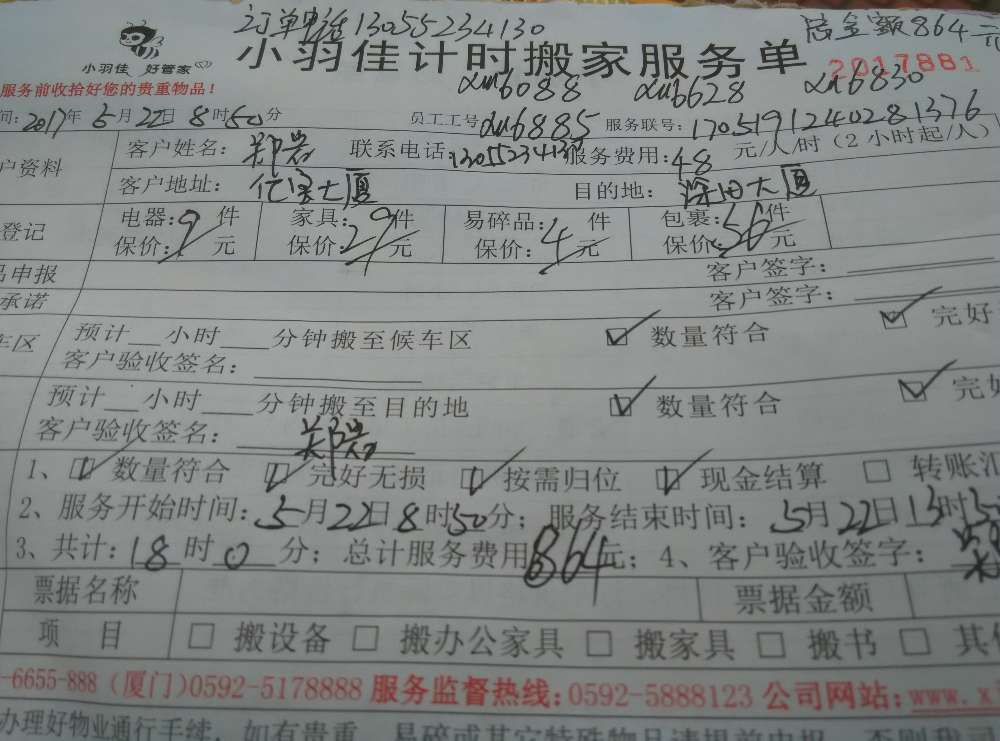 订单电话13055234130 总金额864元
小羽佳 好管家
小羽佳计时搬家服务单 2017881
服务前收拾好您的贵重物品！ xm6088 xm6628 xm6830
间：2017年5月22日8时50分 员工工号xm6885 服务联号：17051912402281376
户资料 客户姓名： 联系电话：13055234130 服务费用：48 元/人/时（2小时起/人）
客户地址：亿宝大厦 目的地：深田大厦
登记 电器：9件 家具：29件 易碎品：4件 包裹：56件
保价： 元 保价： 元 保价： 元 保价： 元
品申报 客户签字：
承诺 客户签字：
车区 预计__小时___分钟搬至候车区 ☑ 数量符合 ☑ 完好
客户验收签名：
预计__小时___分钟搬至目的地 ☑ 数量符合 ☑ 完好
客户验收签名：
1、☑ 数量符合 ☑ 完好无损 ☑ 按需归位 ☑ 现金结算 □ 转账汇
2、服务开始时间：5月22日8时50分；服务结束时间：5月22日13时5
3、共计：18时0分；总计服务费用864元；4、客户验收签字：
票据名称 票据金额
项 目 □ 搬设备 □ 搬办公家具 □ 搬家具 □ 搬书 □ 其他
-6655-888（厦门）0592-5178888 服务监督热线：0592-5888123 公司网站：www.x
办理好物业通行手续，如有贵重、易碎或其它特殊物品请提前申报，否则我司